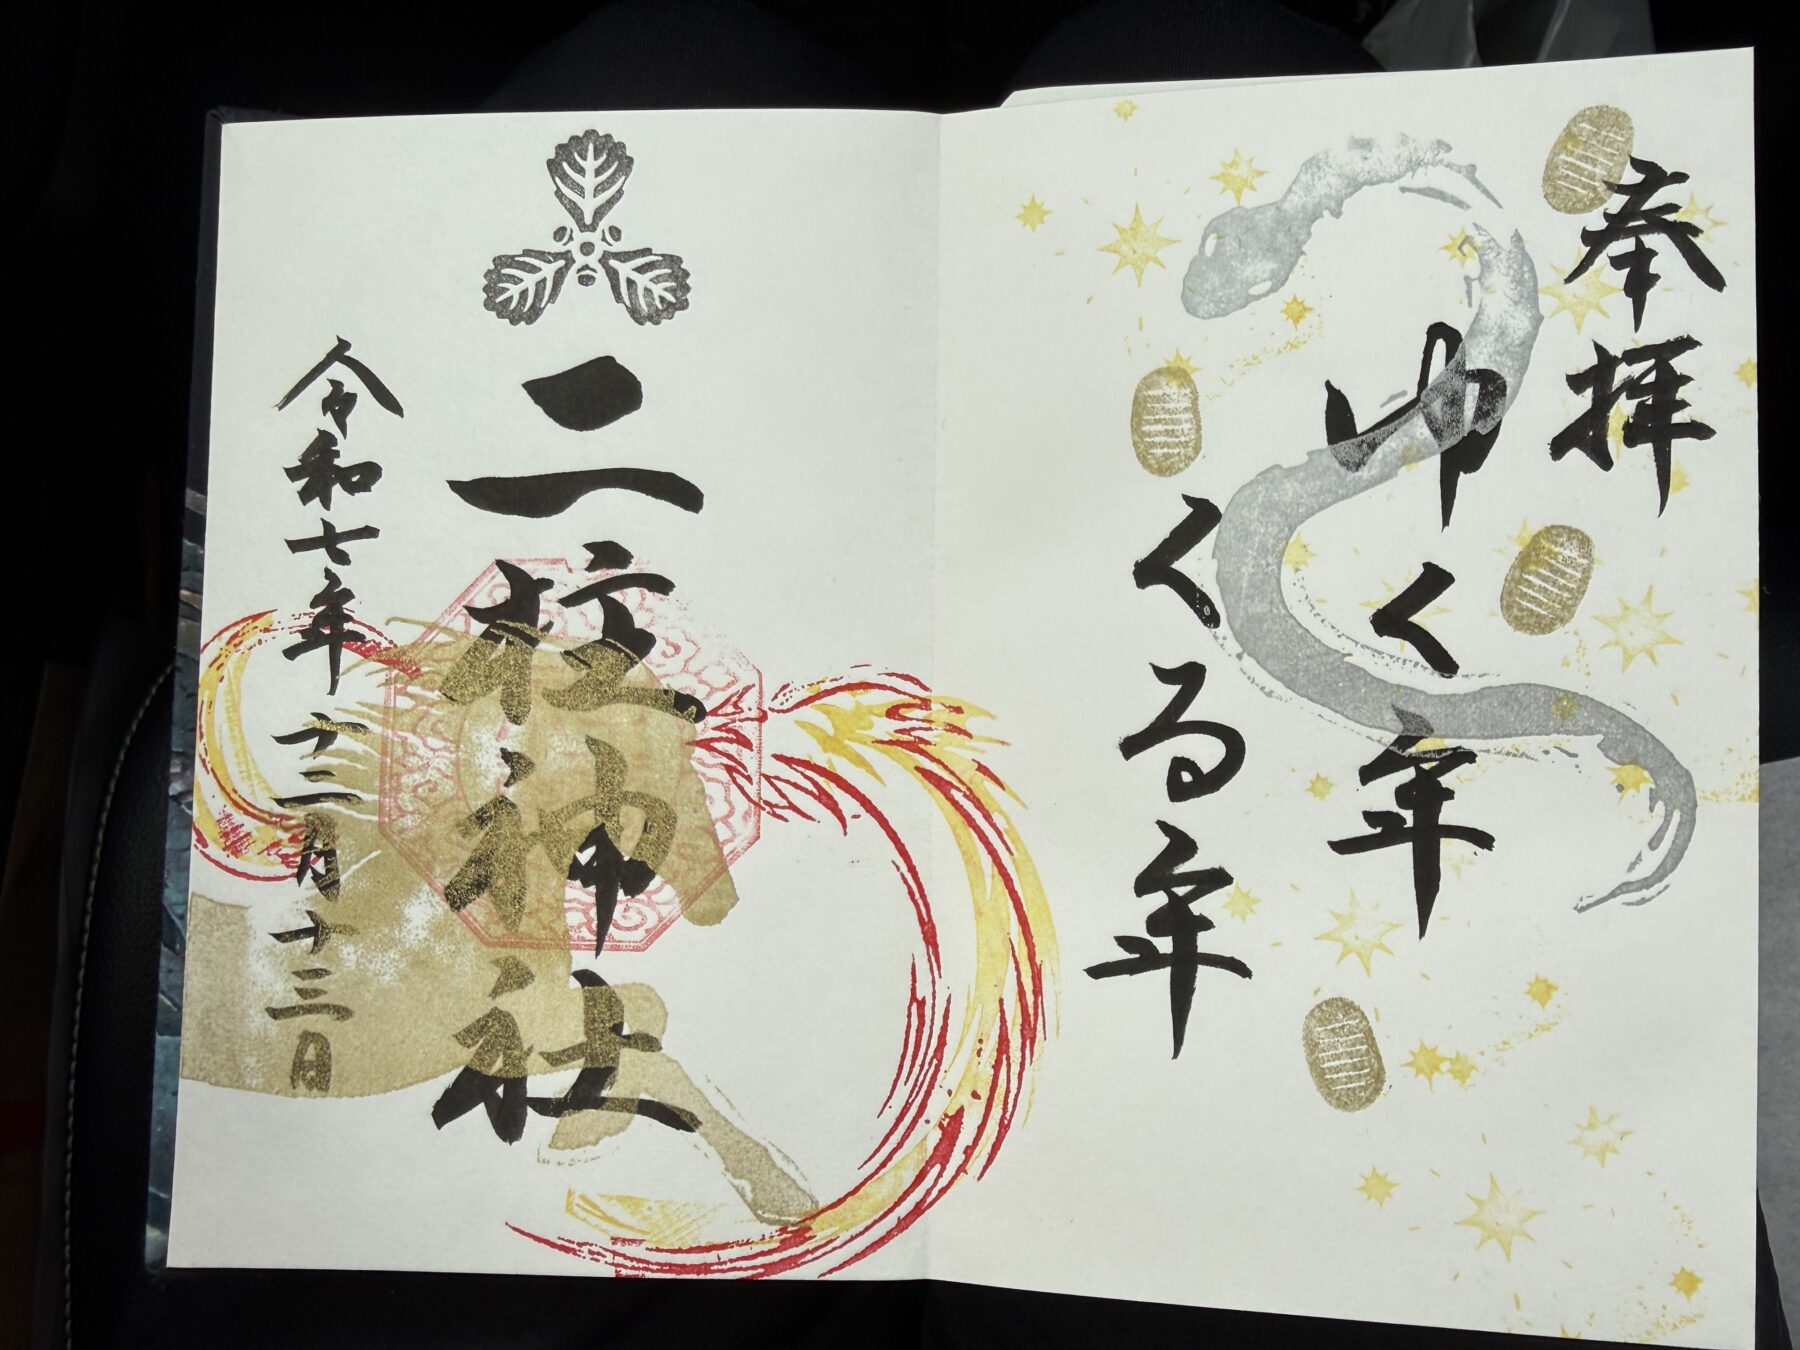 奉拝
ゆく年
くる年
二柱神社
令和七年十二月十三日